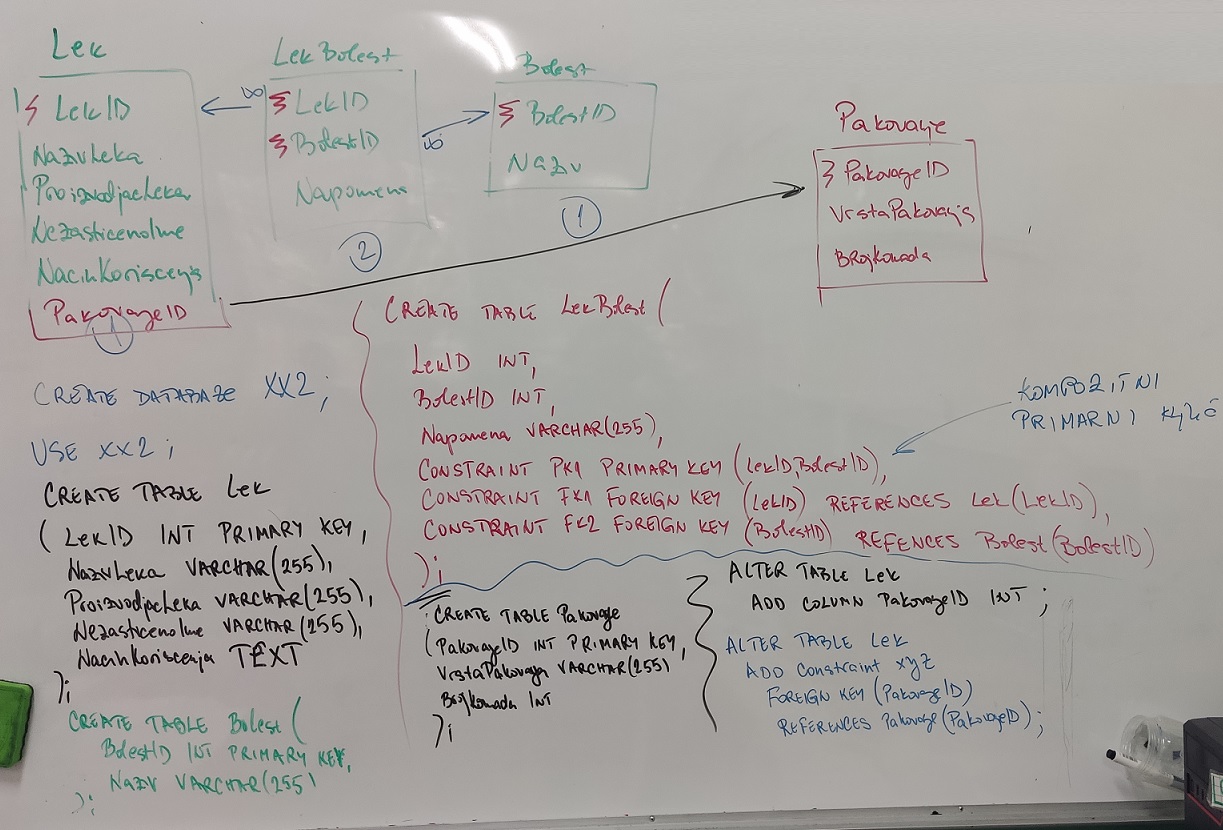 Lek
LekID
NazivLeka
ProizvodjacLeka
NezasticenoIme
NacinKoriscenja
PakovanjeID
1
LekBolest
∞
LekID
BolestID
∞
Napomena
2
Bolest
BolestID
Naziv
1
Pakovanje
PakovanjeID
VrstaPakovanja
BrojKomada
CREATE DATABAZE XX2;
USE XX2;
CREATE TABLE Lek
(LekID INT PRIMARY KEY,
NazivLeka VARCHAR(255),
ProizvodjacLeka VARCHAR(255),
NezasticenoIme VARCHAR(255),
NacinKoriscenja TEXT
);
CREATE TABLE Bolest(
BolestID INT PRIMARY KEY,
Naziv VARCHAR(255)
);
CREATE TABLE LekBolest(
LekID INT,
BolestID INT,
Napomena VARCHAR(255),
CONSTRAINT PK1 PRIMARY KEY (LekID,BolestID),
CONSTRAINT FK1 FOREIGN KEY (LekID) REFERENCES Lek(LekID),
CONSTRAINT FK2 FOREIGN KEY (BolestID) REFENCES Bolest(BolestID)
);
KOMPOZITNI
PRIMARNI KLJUČ
CREATE TABLE Pakovanje
(PakovanjeID INT PRIMARY KEY,
VrstaPakovanja VARCHAR(255)
BrojKomada INT
);
ALTER TABLE Lek
ADD COLUMN PakovanjeID INT;
ALTER TABLE Lek
ADD Constraint xyz
FOREIGN KEY (PakovanjeID)
REFERENCES Pakovanje(PakovanjeID);